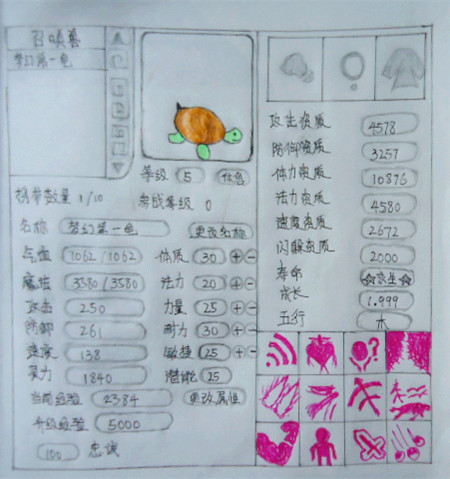 召唤兽
梦幻第一龟
等级 5 仓合
携带数量 1/10 参战等级 0
名称 梦幻第一龟 更改名称
气血 1062/1062 体质 30 + -
魔法 3580/3580 法力 20 + -
攻击 250 力量 25 + -
防御 261 耐力 30 + -
速度 138 敏捷 25 + -
灵力 1840 潜能 25
当前经验 2384 更改属性
升级经验 5000
100 忠诚
攻击资质 4578
防御资质 3257
体力资质 10876
法力资质 4580
速度资质 2672
闪躲资质 2000
寿命 ☆永生☆
成长 1.999
五行 木